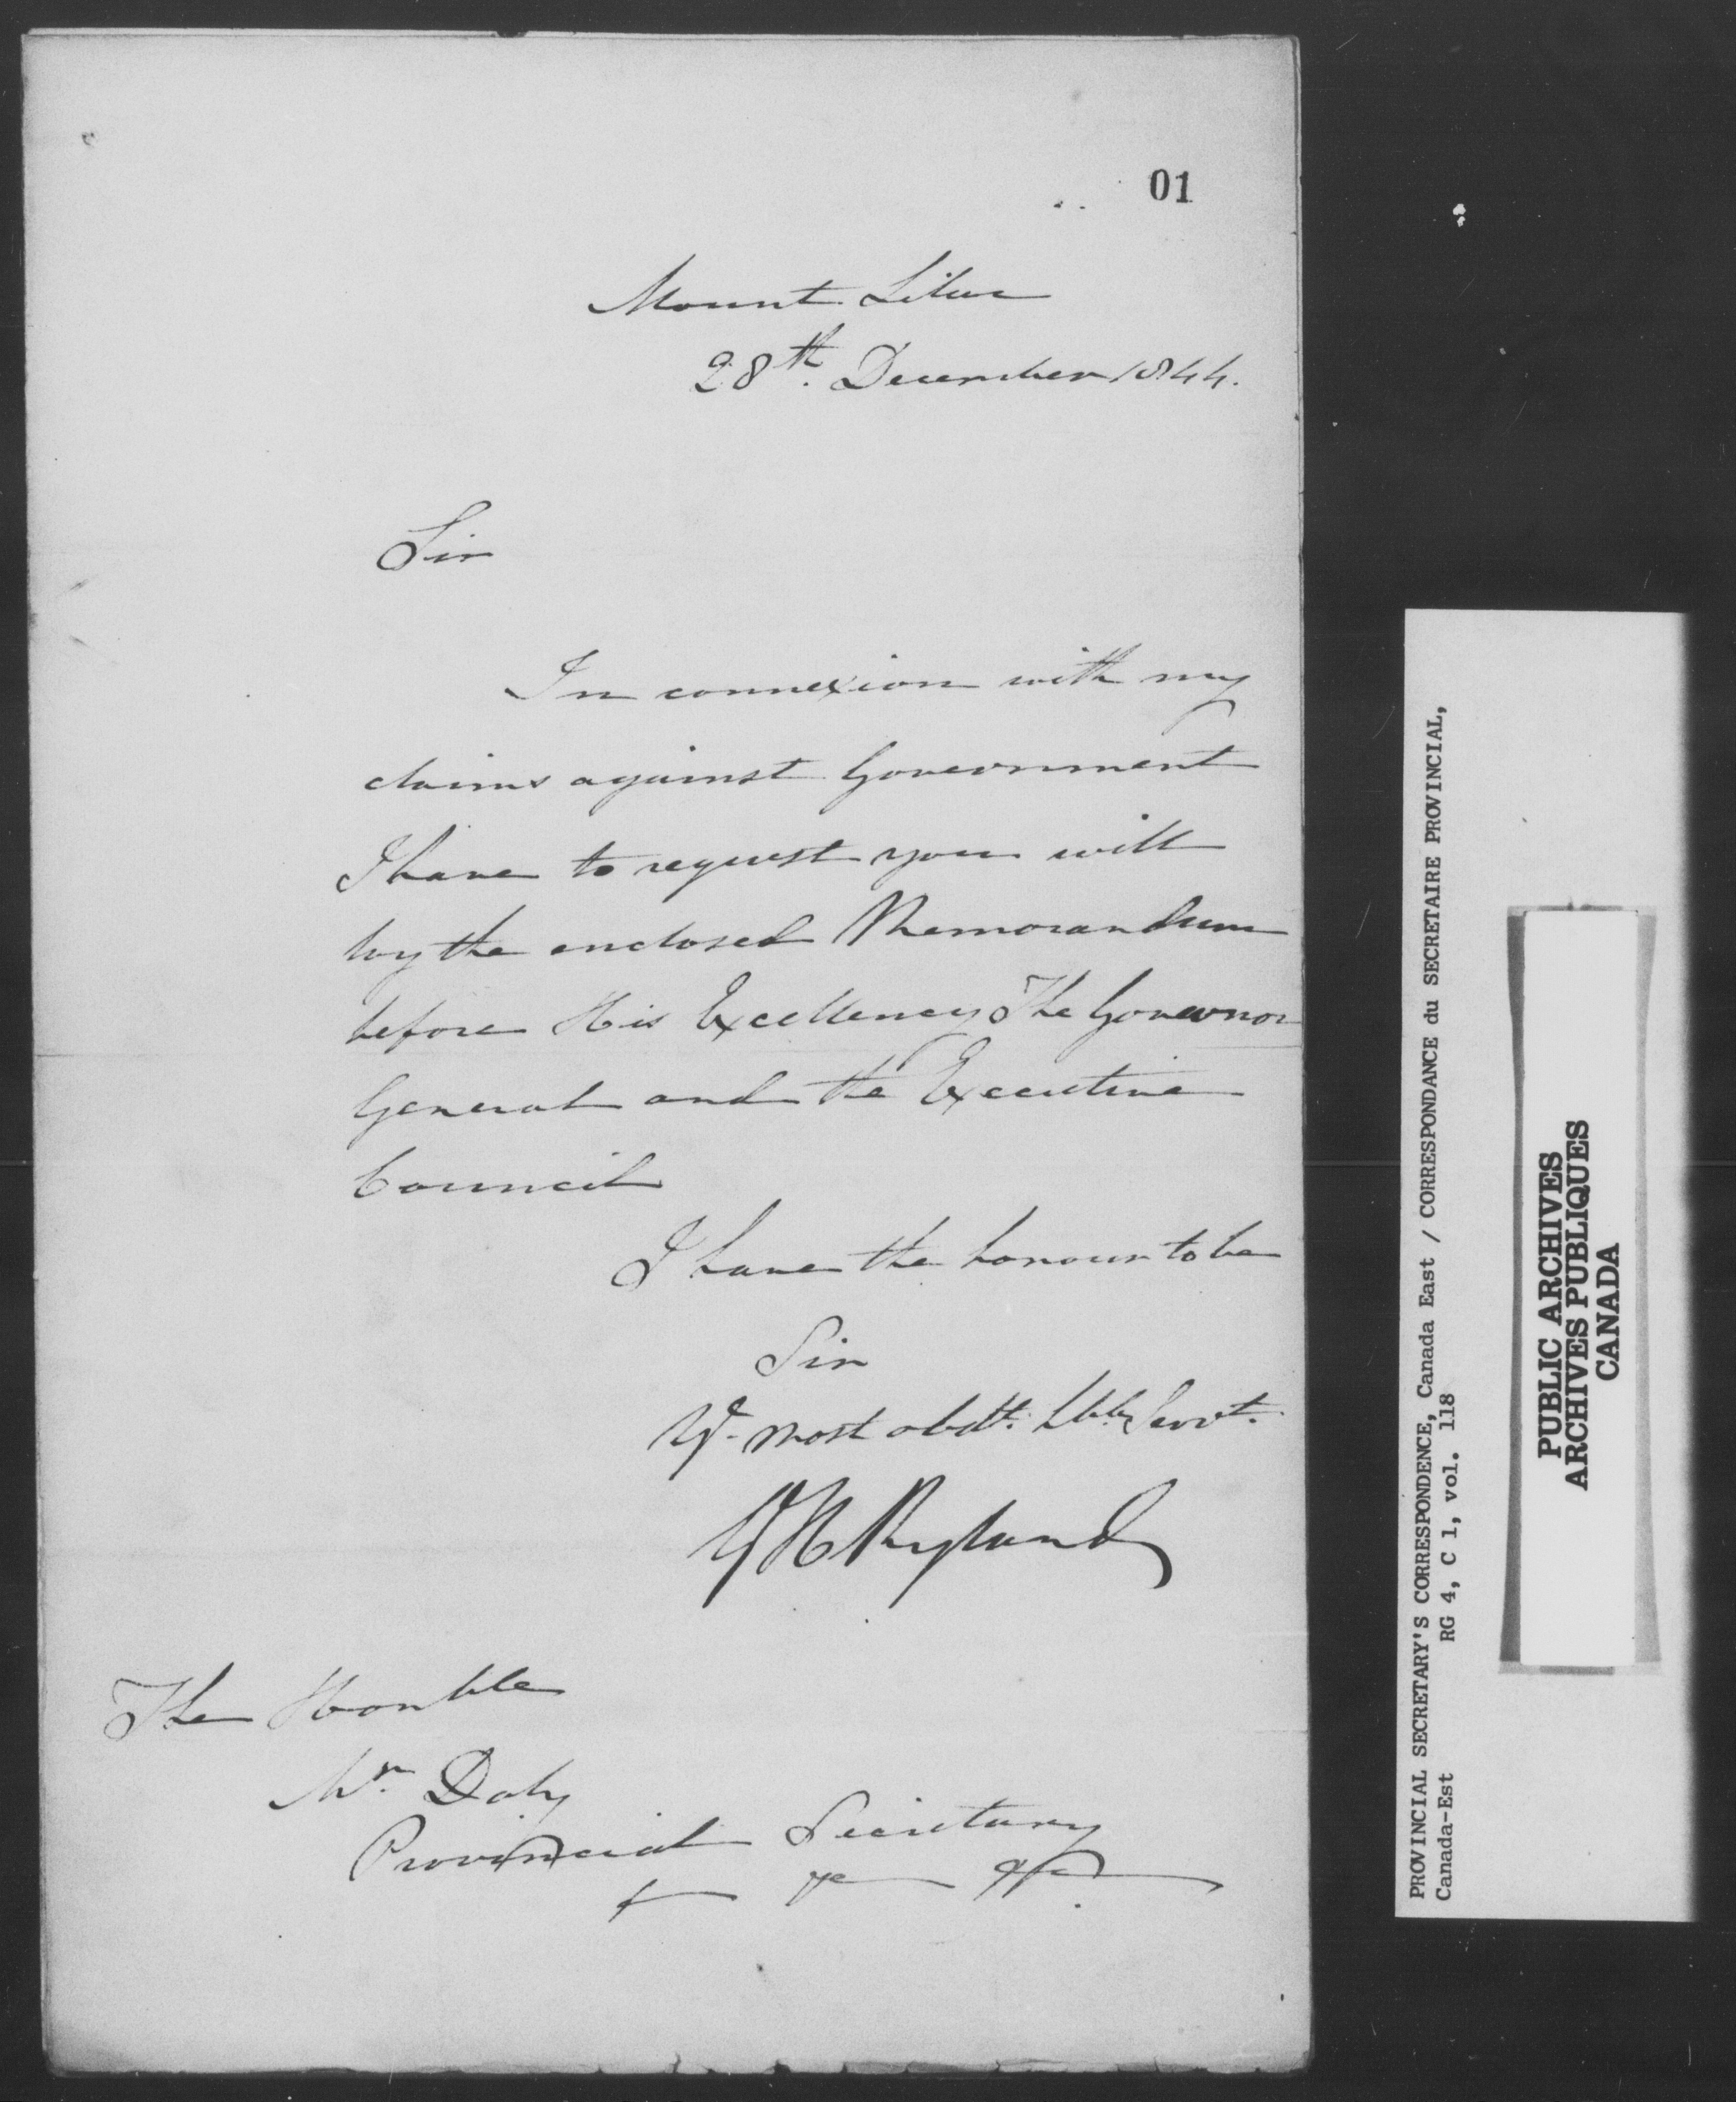 01
Mount Lilac
28th. December 1844.
Sir
In connexion with my
claims against Government
I have to request you will
lay the enclosed Memorandum
before His Excellency The Governor
General and the Executive
Council
I have the honour to be
Sir
Yr. most obdt. Hble Servt.
G H Ryland
The Honble
Mr. Daly
Provincial Secretary
&c &c &c
PROVINCIAL SECRETARY'S CORRESPONDENCE, Canada East / CORRESPONDANCE du SECRETAIRE PROVINCIAL,
Canada-Est RG 4, C 1, vol. 118
PUBLIC ARCHIVES
ARCHIVES PUBLIQUES
CANADA